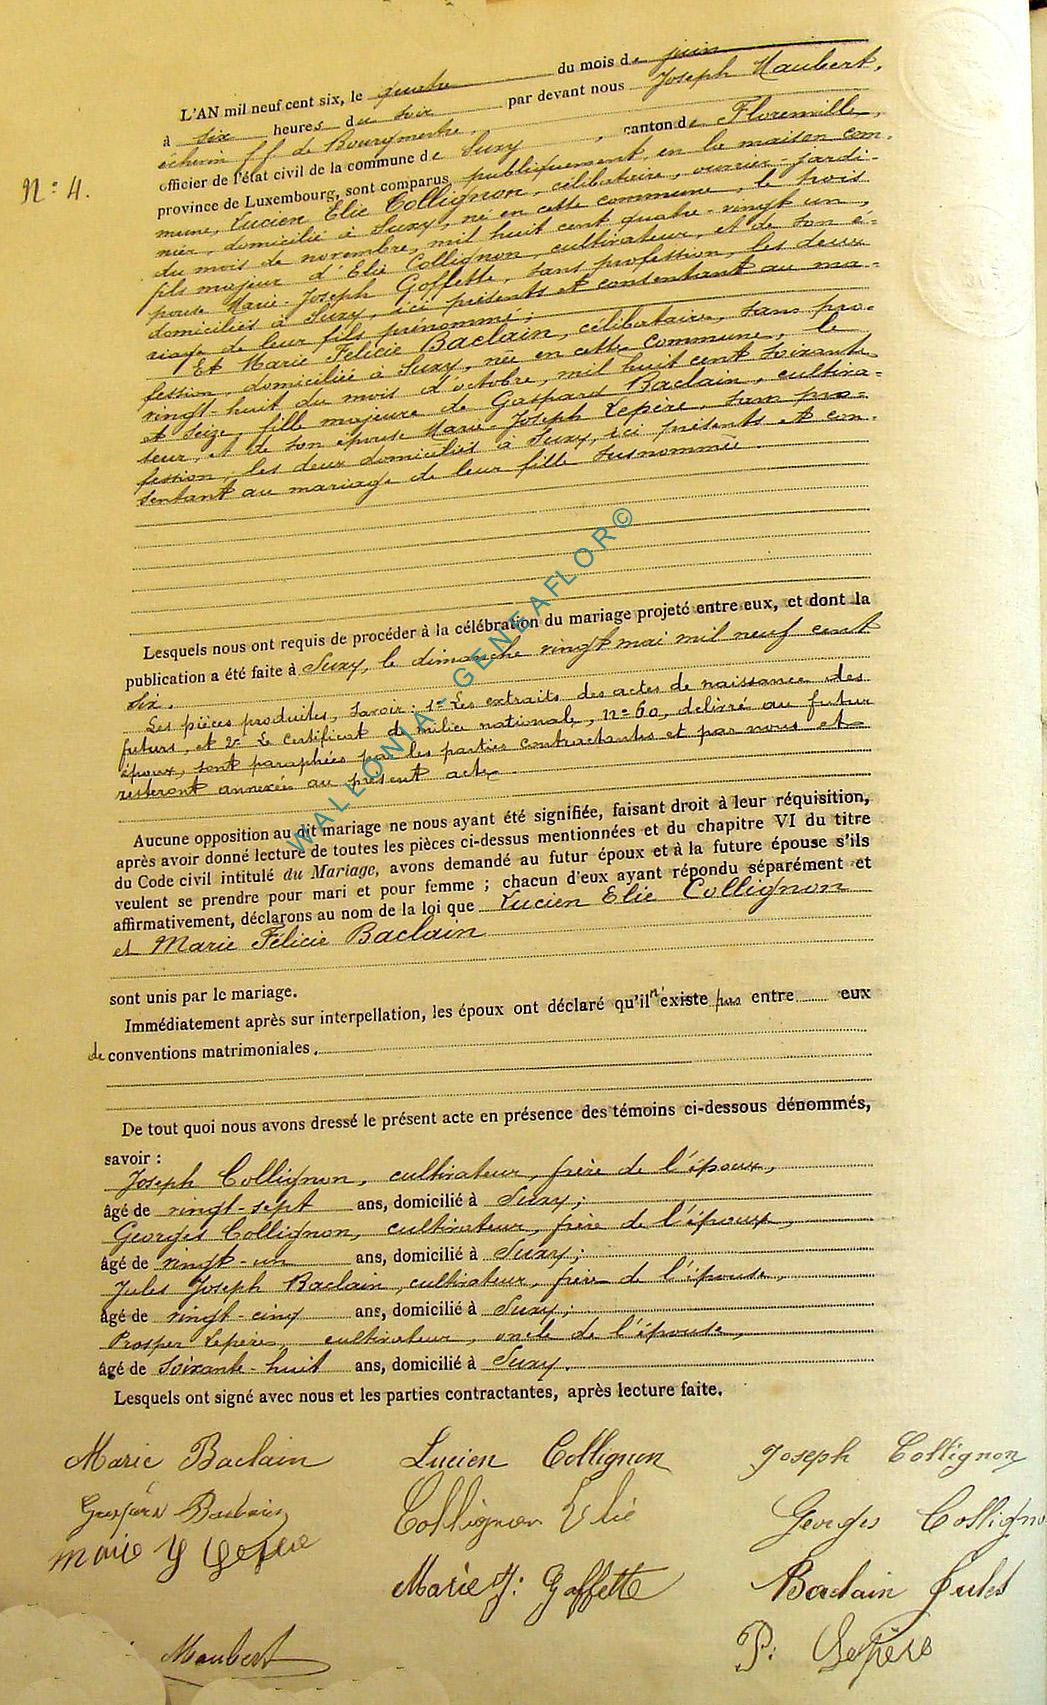 N° 4.
L'AN mil neuf cent six, le quatre du mois de juin
à six heures du soir par devant nous Joseph Maubert,
échevin ff de Bourgmestre,
officier de l'état civil de la commune de Suxy, canton de Florenville,
province de Luxembourg, sont comparus publiquement, en la maison com-
mune, Lucien Elie Collignon, célibataire, ouvrier-jardi-
nier, domicilié à Suxy, né en cette commune, le trois
du mois de novembre, mil huit cent quatre-vingt un,
fils majeur d'Elie Collignon, cultivateur, et de son é-
pouse Marie-Joseph Goffette, sans profession, les deux
domiciliés à Suxy, ici présents et consentant au ma-
riage de leur fils prénommé;
Et Marie Félicie Baclain, célibataire, sans pro-
fession, domiciliée à Suxy, née en cette commune, le
vingt-huit du mois d'octobre, mil huit cent soixante
et seize, fille majeure de Gaspard Baclain, cultiva-
teur, et de son épouse Marie-Joseph Lepère, sans pro-
fession, les deux domiciliés à Suxy, ici présents et con-
sentant au mariage de leur fille susnommée.
Lesquels nous ont requis de procéder à la célébration du mariage projeté entre eux, et dont la
publication a été faite à Suxy, le dimanche vingt mai mil neuf cent
six.
Les pièces produites, savoir: 1° Les extraits des actes de naissance des
futurs, et 2° Le certificat de milice nationale, n° 60, délivré au futur
époux, sont paraphées par les parties contractantes et par nous et
resteront annexées au présent acte.
Aucune opposition au dit mariage ne nous ayant été signifiée, faisant droit à leur réquisition,
après avoir donné lecture de toutes les pièces ci-dessus mentionnées et du chapitre VI du titre
du Code civil intitulé du Mariage, avons demandé au futur époux et à la future épouse s'ils
veulent se prendre pour mari et pour femme ; chacun d'eux ayant répondu séparément et
affirmativement, déclarons au nom de la loi que Lucien Elie Collignon
et Marie Félicie Baclain
sont unis par le mariage.
Immédiatement après sur interpellation, les époux ont déclaré qu'il n'existe pas entre eux
de conventions matrimoniales.
De tout quoi nous avons dressé le présent acte en présence des témoins ci-dessous dénommés,
savoir :
Joseph Collignon, cultivateur, frère de l'époux,
âgé de vingt-sept ans, domicilié à Suxy;
Georges Collignon, cultivateur, frère de l'époux,
âgé de vingt-un ans, domicilié à Suxy;
Jules Joseph Baclain, cultivateur, frère de l'épouse,
âgé de vingt-cinq ans, domicilié à Suxy;
Prosper Lepère, cultivateur, oncle de l'épouse,
âgé de soixante-huit ans, domicilié à Suxy.
Lesquels ont signé avec nous et les parties contractantes, après lecture faite.
Marie Baclain Lucien Collignon Joseph Collignon
Gaspard Baclain Collignon Elie Georges Colligno
marie J Lepère Marie J: Goffette Baclain Jules
Maubert P: Lepère
WALLONIA - GENEAFLOR©